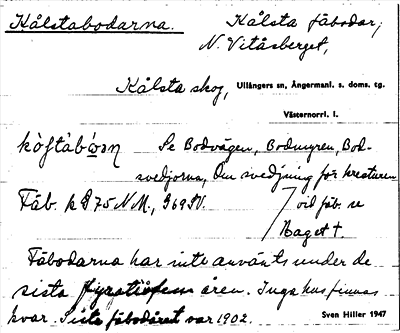 Kålstabodarna. Kålsta fäbodar,
N. Vitåsberget,
Kålsta skog, Ullångers sn, Ångermanl. s. doms. tg.
Västernorrl. l.
Se Bodvägen, Bodmyren, Bod-
svedjorna, Den svedjning för kreaturen
Fäb. på 75 NM., 969 SV. vid fäb. se
Baget +
Fäbodarna har inte använts under de
sista fyratiofem åren. Inga hus finnas
kvar. Sista fäbodåret var 1902. Sven Hiller 1947